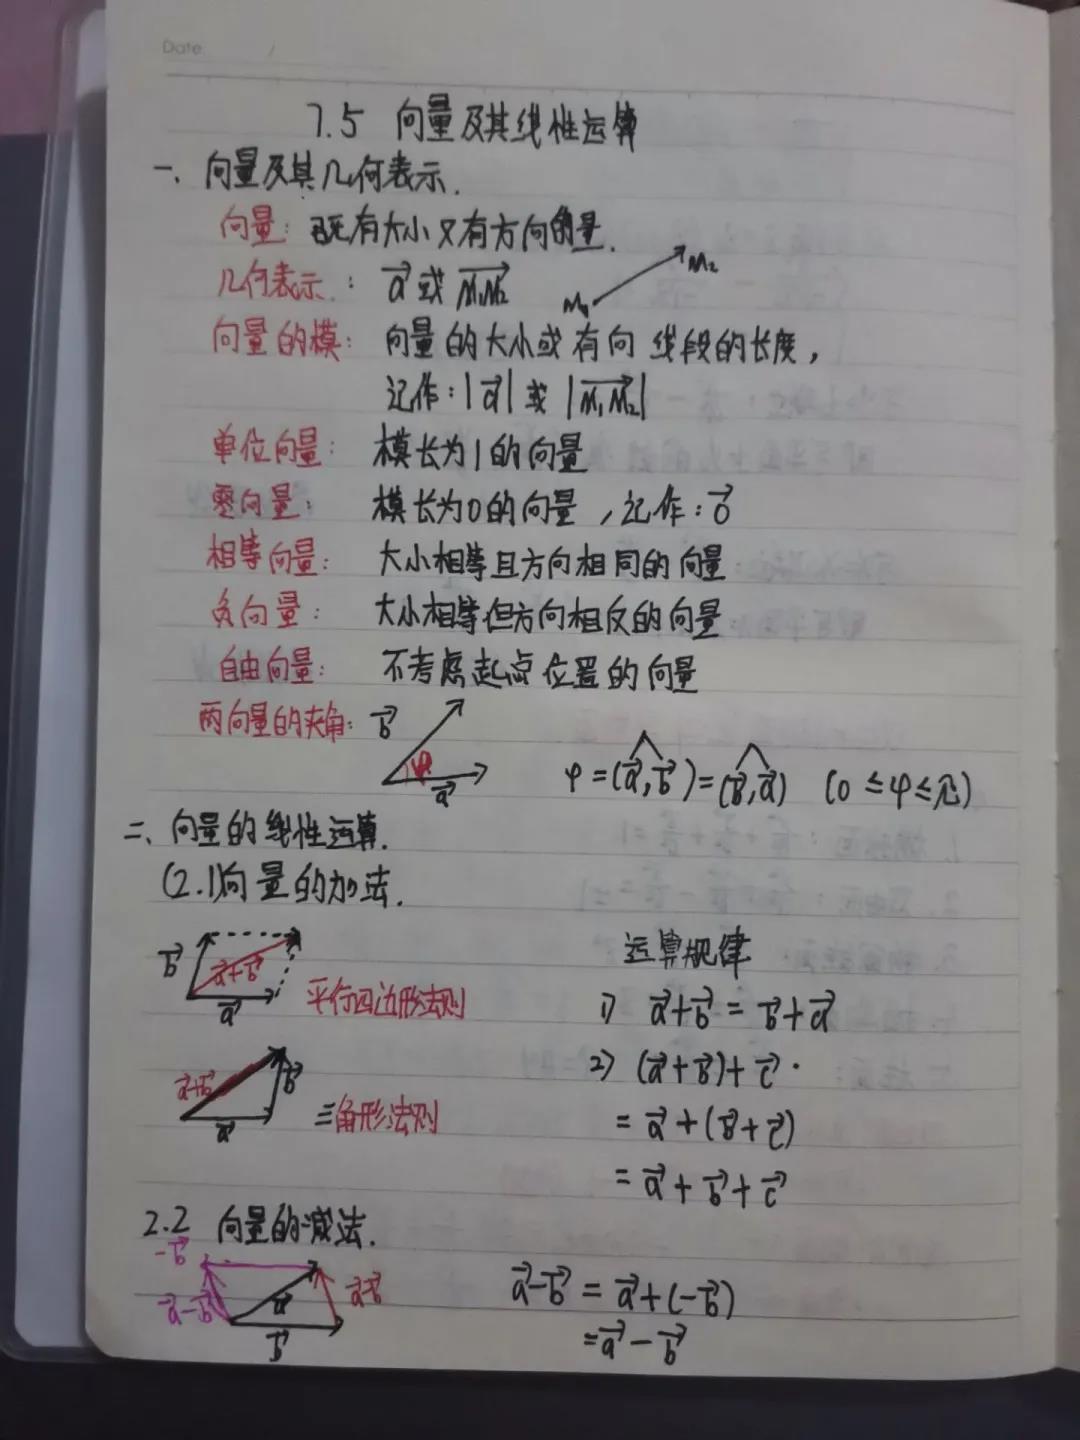 Date: /
7.5 向量及其线性运算
一、向量及其几何表示.
向量: 既有大小又有方向的量.
几何表示: a⃗ 或 M₁M₂⃗
M₁ M₂
向量的模: 向量的大小或有向线段的长度,
记作: |a⃗| 或 |M₁M₂⃗|
单位向量: 模长为1的向量
零向量: 模长为0的向量,记作: 0⃗
相等向量: 大小相等且方向相同的向量
负向量: 大小相等但方向相反的向量
自由向量: 不考虑起点位置的向量
两向量的夹角: b⃗ φ a⃗ φ=(a⃗,b⃗)=(b⃗,a⃗) (0≤φ≤π)
二、向量的线性运算.
(2.1)向量的加法.
b⃗ a⃗+b⃗ a⃗ 平行四边形法则
运算规律
1) a⃗+b⃗=b⃗+a⃗
a⃗+b⃗ b⃗ a⃗ 三角形法则
2) (a⃗+b⃗)+c⃗
=a⃗+(b⃗+c⃗)
=a⃗+b⃗+c⃗
2.2 向量的减法.
-b⃗ a⃗-b⃗ a⃗ b⃗ a⃗-b⃗
a⃗-b⃗=a⃗+(-b⃗)
=a⃗-b⃗